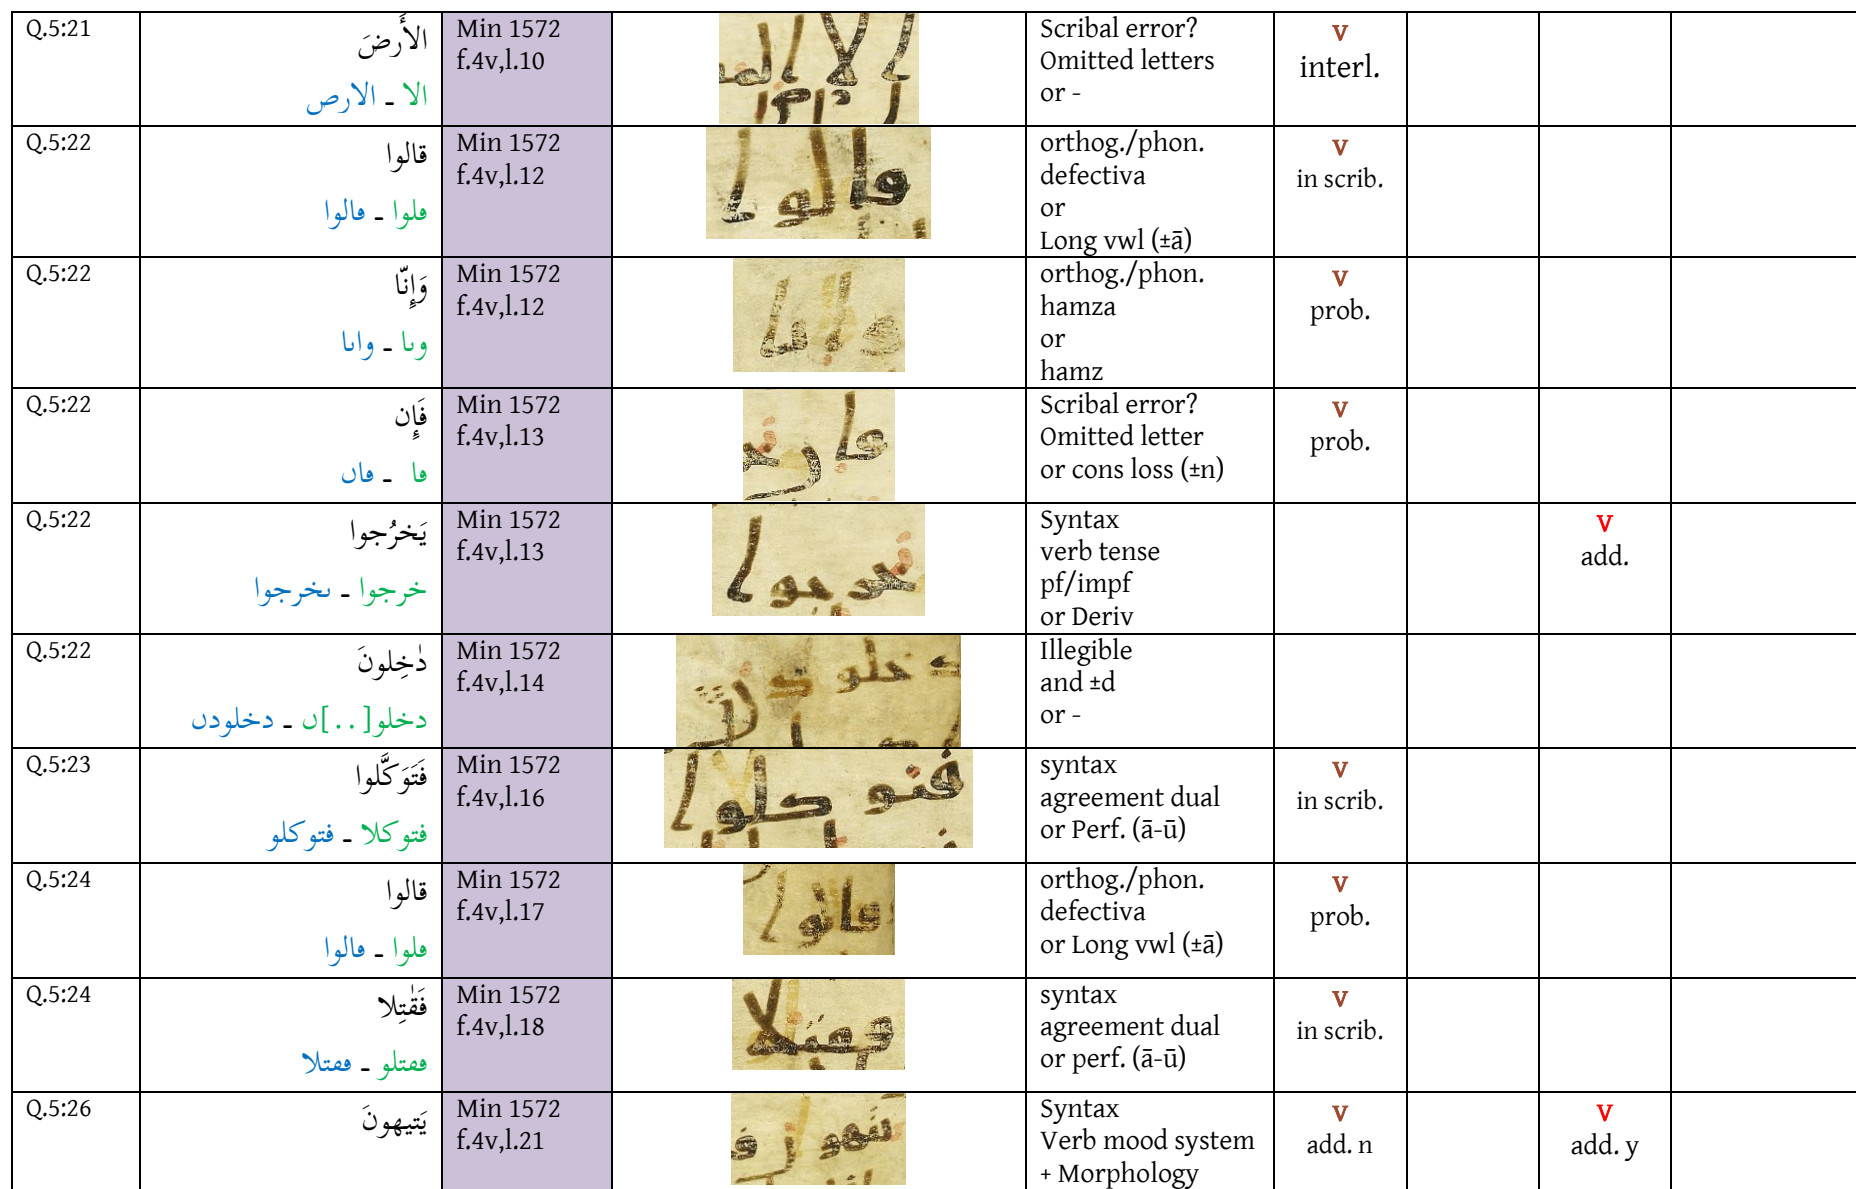 Q.5:21
الأَرضَ
الا ـ الارص
Min 1572
f.4v,l.10
Scribal error?
Omitted letters
or -
v
interl.
Q.5:22
قالوا
ڡلوا ـ ڡالوا
Min 1572
f.4v,l.12
orthog./phon.
defectiva
or
Long vwl (±ā)
v
in scrib.
Q.5:22
وَإِنّا
وٮا ـ واٮا
Min 1572
f.4v,l.12
orthog./phon.
hamza
or
hamz
v
prob.
Q.5:22
فَإِن
ڡا ـ ڡاں
Min 1572
f.4v,l.13
Scribal error?
Omitted letter
or cons loss (±n)
v
prob.
Q.5:22
يَخرُجوا
خرجوا ـ ٮخرجوا
Min 1572
f.4v,l.13
Syntax
verb tense
pf/impf
or Deriv
v
add.
Q.5:22
دٰخِلونَ
دخلو[..]ں ـ دخلودں
Min 1572
f.4v,l.14
Illegible
and ±d
or -
Q.5:23
فَتَوَكَّلوا
فتوكلا ـ فتوكلو
Min 1572
f.4v,l.16
syntax
agreement dual
or Perf. (ā-ū)
v
in scrib.
Q.5:24
قالوا
ڡلوا ـ ڡالوا
Min 1572
f.4v,l.17
orthog./phon.
defectiva
or Long vwl (±ā)
v
prob.
Q.5:24
فَقٰتِلا
ڡڡتلو ـ ڡڡتلا
Min 1572
f.4v,l.18
syntax
agreement dual
or perf. (ā-ū)
v
in scrib.
Q.5:26
يَتيهونَ
Min 1572
f.4v,l.21
Syntax
Verb mood system
+ Morphology
v
add. n
v
add. y